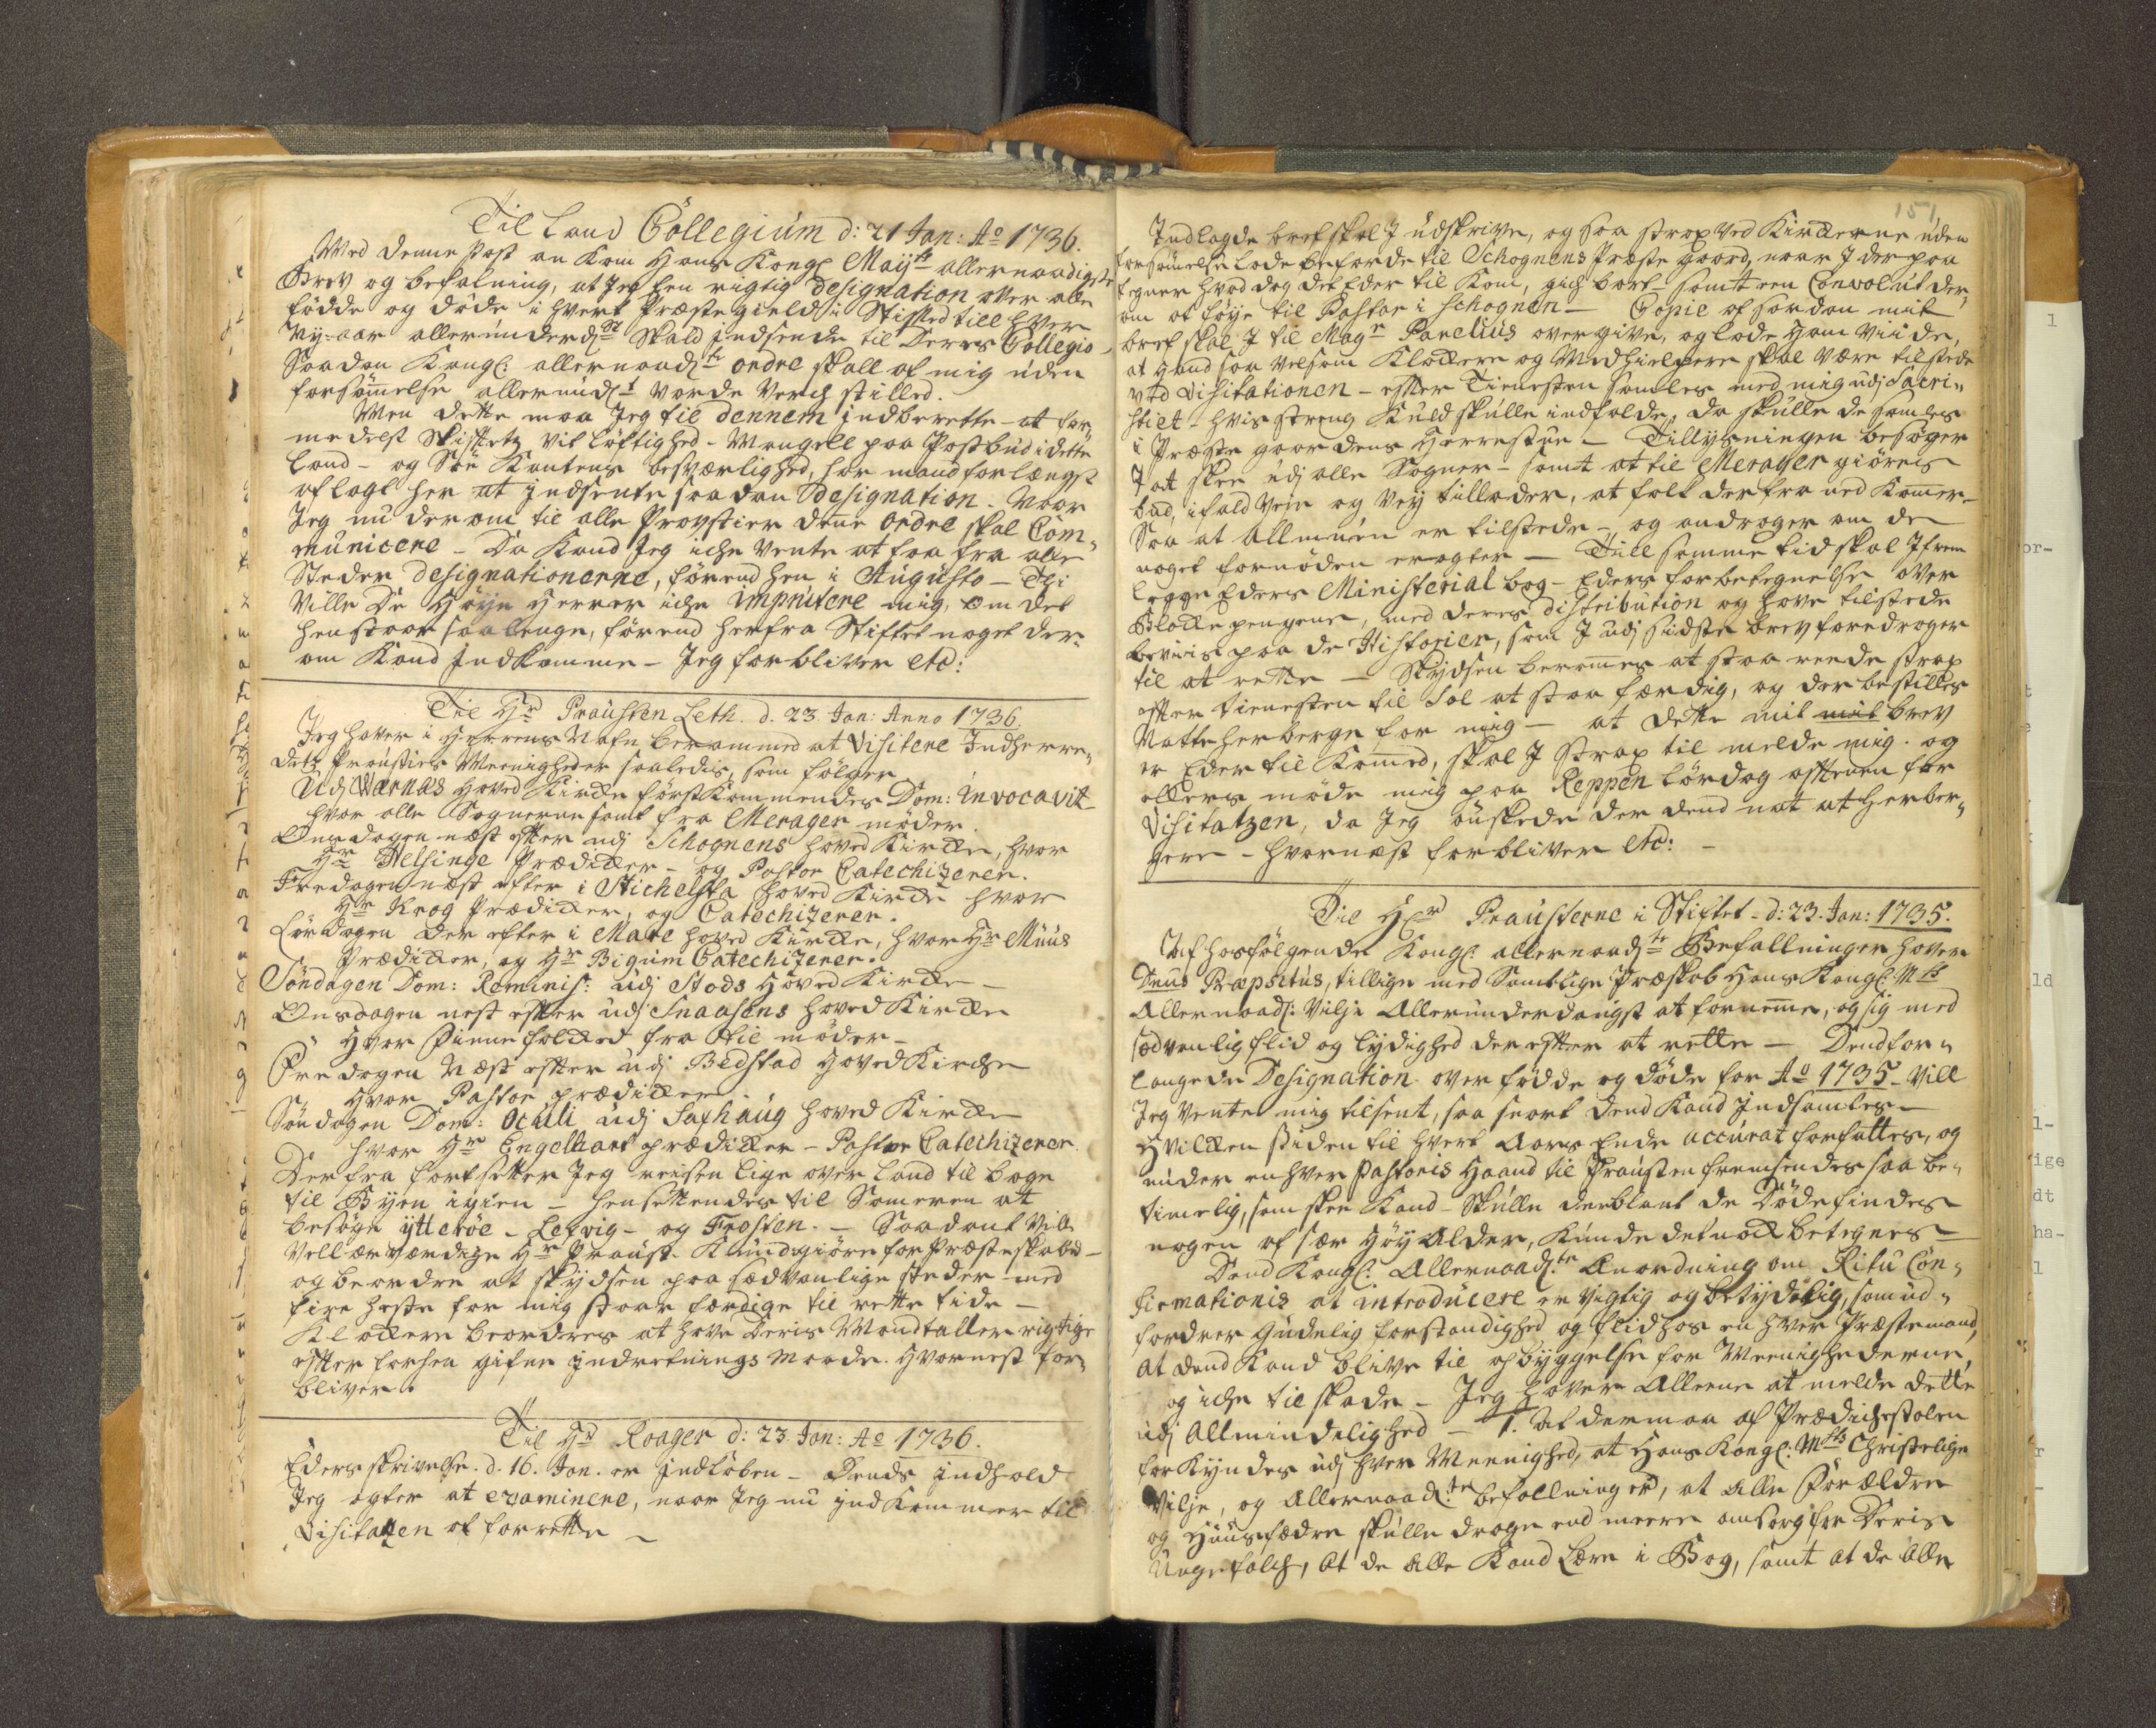 Til Land Collegium d: 21 Jan: Ao 1736.
Med denne Post an kom Hans Kongl Mayts allernaadigste
Brev og befalning, at Jeg en rigtig Designation over alle
födde og döde i hvert Præstegield i Stifted till hver
Ny-aar allerunderdst skald indsende til Deres Collegio
Saadan Kongl: allernaadste ordre skall af mig uden
forsömmelse allerundst vorde verch stilled.
Men dette maa Jeg til dennem indberette - at for-
medelst Stiftets vitlöftighed - Mangell paa Postbud i dette
Land - og Söe Kantens besværlighed, har mand forlængst
aflagt her at indsente saadan Designation. Naar
Jeg nu derom til alle Provstier denne Ordre skal Com-
municere - Da kand Jeg iche vente at faa fra alle
Steder Designationerne, förend hen i Augusto - Thi
ville De Höye Herrer iche imputere mig, om det
henstaar saa lenge, förend herfra Stiftet noget der-
om kand indkomme - Jeg forbliver etc:
Til Hr Prausten Leth. d. 23 Jan: Anno 1736.
Jeg haver i Herrens Nafn berammed at Visitere Indherre-
dets Proustiets Meenigheder saaledis, som fölger
Udj Wærnæs Hoved Kircke förstkommendes Dom: Invocavit
hvor alle Sognerne samt fra Merager möder.
Onsdagen næst efter udj Schognens hoved Kircke, hvor
Hr Helsinge Prædicker - og Pastor Catechizerer.
Fredagen næst efter i Stichelsta hoved Kircke hvor
Hr Krog Prædicker, og Catechizerer.
Lördagen der efter i Mare hoved Kircke, hvor Hr Muus
Prædicker, og Hr Bigum Catechizerer.
Söndagen Dom: Reminis: udj Stods Hoved Kircke -
Onsdagen nest efter udj Snaasens hoved Kircke
Hvor Finnefolcked fra Fie möder -
Fredagen Næst efter udj Bedstad Hoved Kirche
Hvor Pastor prædicker
Söndagen Dom: Oculi udj Saxhaug hoved Kircke
hvor Hr Engelhart prædicker - Pastor Catechizerer
Derfra fortsetter Jeg reisen lige over land til bage
til Byen igien - hensettendes til Someren at
besöge ytteröe - Lexvig - og Frosten. - Saadant vil
Vellærværdige Hr Praust Kundgiöre for Præsteskabed -
og beordre at skydsen paa sædvanlige steder med
fire heste for mig staar færdige til rette tide -
Klockere beordres at have deris Mandtaller rigtige
efter forhen gifne indretnings maade. Hvornest for-
bliver.
Til Hr Roager d: 23 Jan: Ao 1736.
Eders skrivelse d. 16. Jan. er indlöben - Dends indhold
Jeg agter at examinere, naar Jeg nu ind kommer til
Visitatzen at forrette -
151
Indlagde bref skal I udskrive, og saa strax ved Kirckerne uden
forsömmelse lade befordre til Schognens Præste gaard, naar I der paa
tegner hvad dag det Eder til kom, gich bort - samt een Convolut der-
om at föye til Pastor i Schognen - Copie af saadan mit
bref skal I til Magr Parelius overgive, og lade ham viide,
at hand saa velsom Klockere og Medhielpere skal være tilstede
ved Visitationen - efter Tienesten samles med mig udj Sacri-
stiet - hvis streng Kuld skulle indfalde, da skulle de samles
i Præste gaardens Herrestue - Tillysningen besörger
I at skee udj alle Sogner - samt at til Merager giöris
bud, ifald Veir og Vey tillader, at folk derfra ned kommer -
Saa at Allmuen er tilstede - og andrager om de
noget fornöden eragter - Till samme tid skal I frem
legge Eders Ministerial bog - Eders forbetegnelse over
Blocke pengene, med deres distribution og have tilstede
beviis paa de Historier, som I udj sidste brev foredrager
til at rette - Skydsen berammes at staa reede strax
efter tienesten til Sal at staa færdig, og der bestilles
Natteherberge for mig - at dette mit mit brev
er Eder til kommed, skal I strax til melde mig. og
ellers möde mig paa Reppen Lördag aftenen for
Visitatzen, da Jeg önskede der dend nat at herber-
gere - hvornæst forbliver etc: -
Til Hr Prausterne i Stiftet - d: 23. Jan: 1735.
Af hosfölgende Kongl: allernaadste Befallninger haver
Dnus Præpsitus, tillige med Samtlige Præskab Hans Kongl Mts
Allernaads: Vilje Allerunderdanigst at fornemme, og sig med
sædvanlig flid og lydighed der efter at rette - Dend for-
langede Designation over födde og döde for Ao 1735 - vill
Jeg vente mig tilsent, saa snart dend kand indsamles -
Hvilcken siden til hvert Aars Ende accurat forfattes, og
under en hver Pastoris Haand til Prousten fremsendes saa be-
timelig, som skee kand - Skulle deriblant de Döde findes
nogen af sær Höy Alder, kunde det nock betegnes -
Dend Kongl: Allernaadste Anordning om Ritu Con-
firmationis at introducere er vigtig og betydelig, som ud-
fordrer Gudelig forstandighed og flid hos en hver Præstemand,
at dend kand blive til opbyggelse for Meenighederne,
og iche til skade - Jeg haver Alleene at melde dette
udj Allmindelighed - 1. at der maa af Prædichestolen
forkyndes udj hver Meenighed, at Hans Kongl: Mtts Christelige
Vilje, og Allernaadste befallning er, at Alle Forældre
og Huusfædre skulle drage end meere omsorg for Deris
Ungefolch, at de alle kand Lære i Bog, samt at de alle